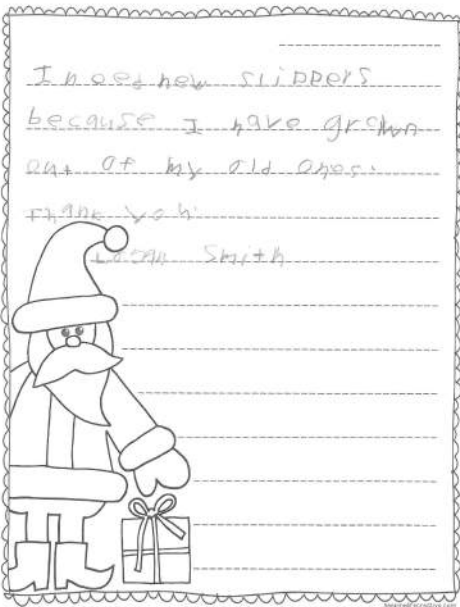 I need new slippers
because I have grown
out of my old ones.
Thank you.
Logan Smith